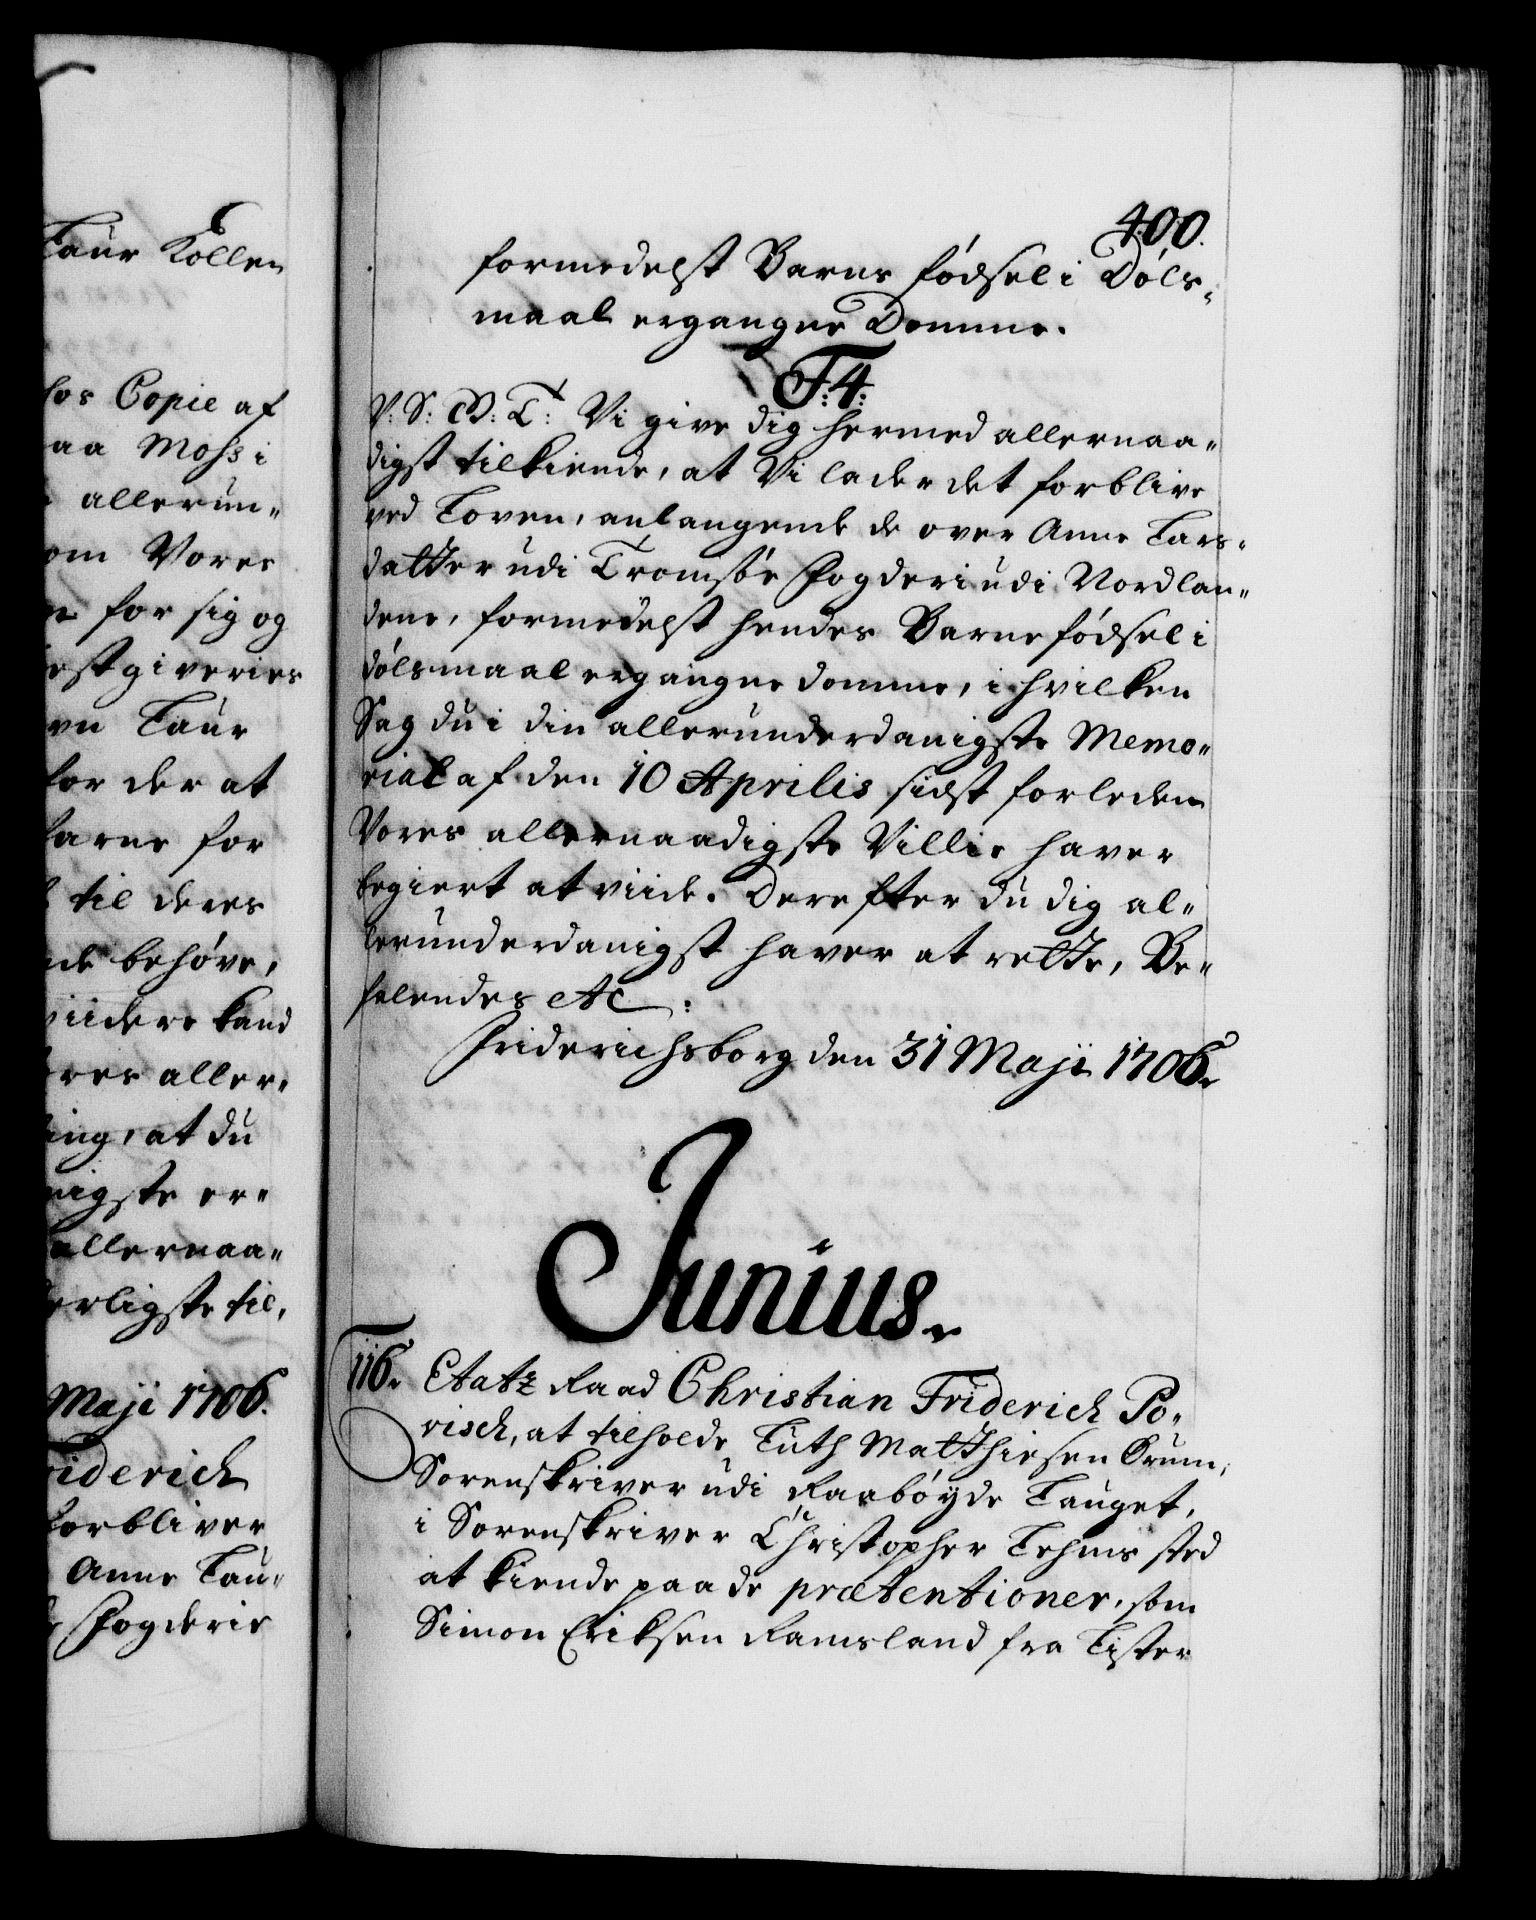 Laur Kollen
hos Copie af
aa Mohs i
allerun-
om Vores
for sig og
estgiveries
vn Laur
for der at
farne for
til deres
nde behøve,
viidere kand
ores aller-
ing, at du
nigste er-
allernaa-
erligste til,
Maji 1706.
riderich
forbliver
Anne Lau-
Fogderie
400.
formedelst Barns fødsel i Døls-
maal ergangne Domme.
F: 4:
V: S: G: T: Vi give dig hermed allernaa-
digst tilkiende, at Vi lader det forblive
ved Loven, anlangende de over Anne Lars-
datter udi Tromsøe Fogderi udi Nordlan-
dene, formedelst hendes Barnefødsel i
dølsmaal ergangne domme, i hvilken
Sag du i din allerunderdanigste Memo-
rial af den 10 Aprilis sidst forleden
Vores allernaadigste Villie haver
begiert at viide. Derefter du dig al-
lerunderdanigst haver at rette, Be-
falendes etc:
Friderichsborg den 31 Maji 1706.
Junius.
116. Etatz Raad Christian Friderich Po-
risch, at tilholde Luth Matthiesen Krum,
Sorenskriver udi Raabøyde Lauget,
i Sorenskriver Christopher Lehms sted
at kiende paa de prætentioner, som
Simon Eriksen Ramsland fra Lister